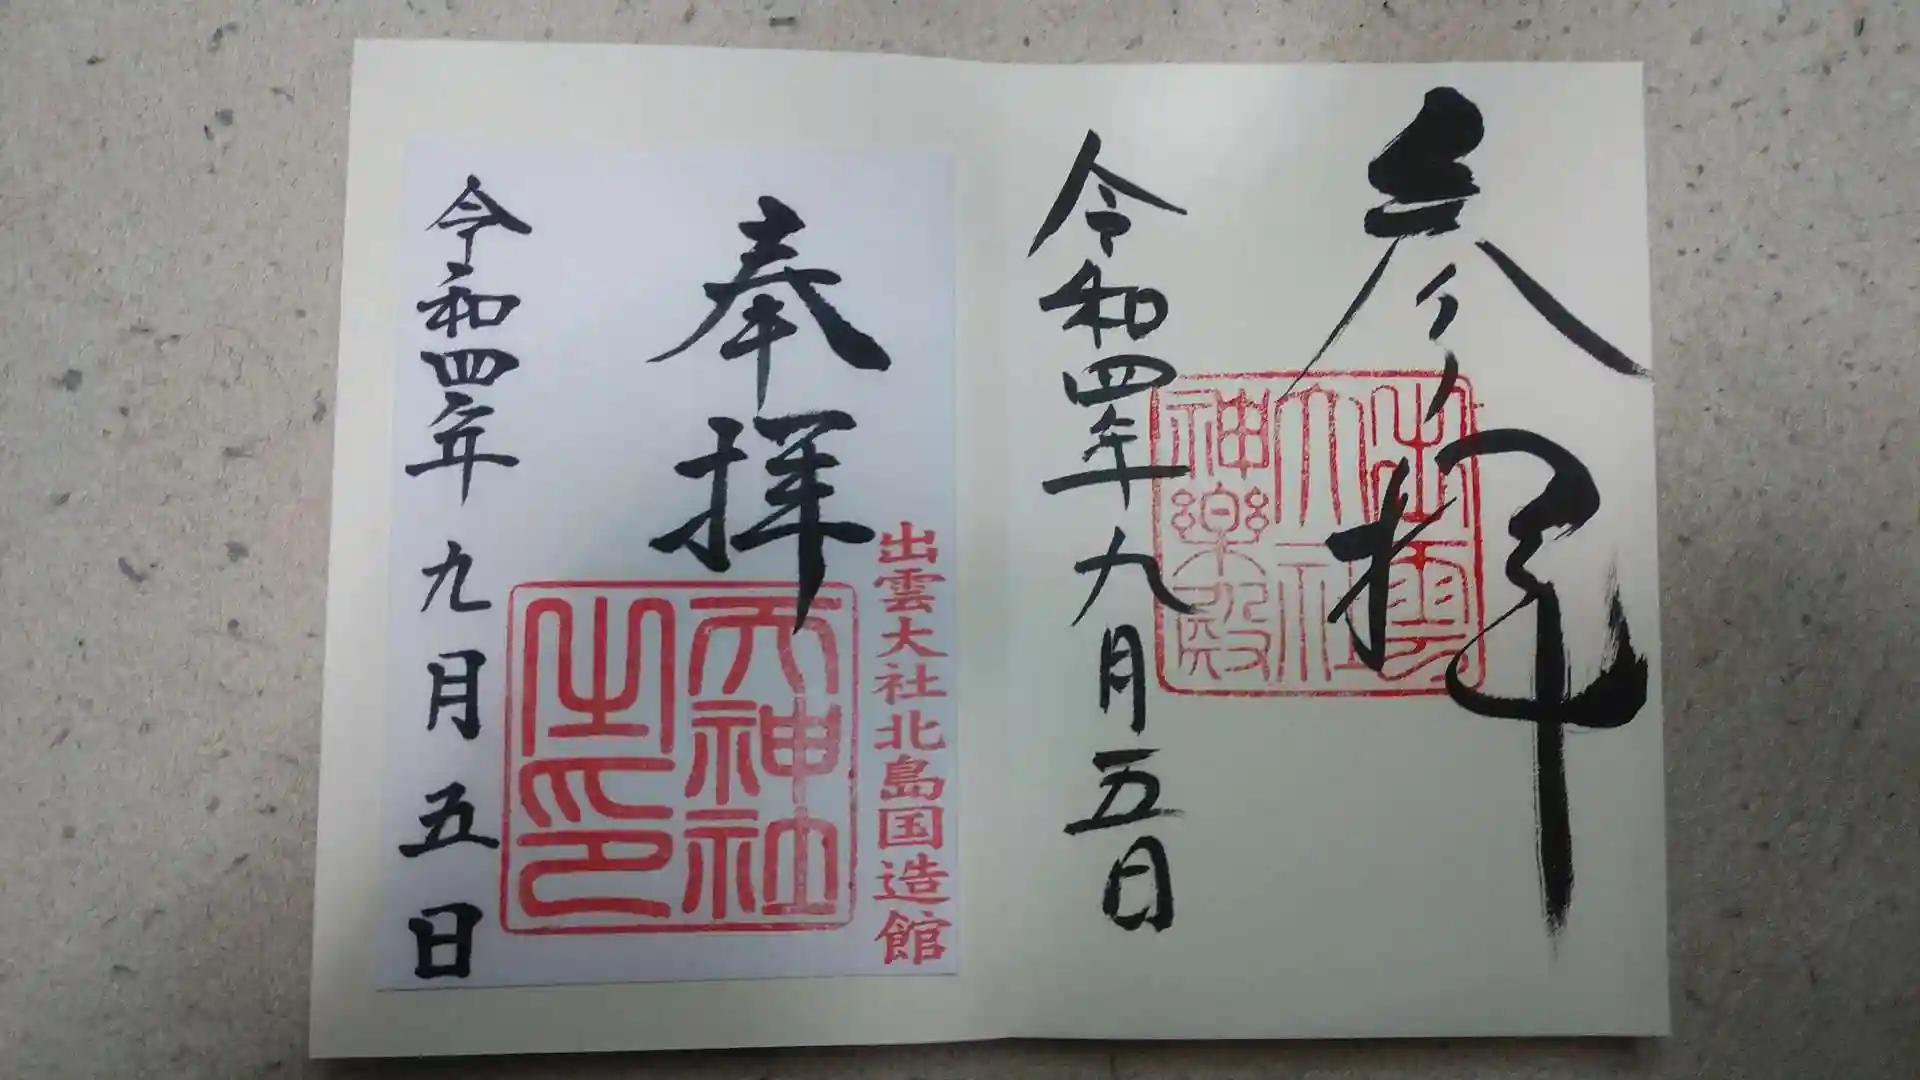 参拝
出雲
大社
神樂殿
令和四年九月五日
出雲大社北島国造館
奉拝
天神社
之印
令和四年九月五日